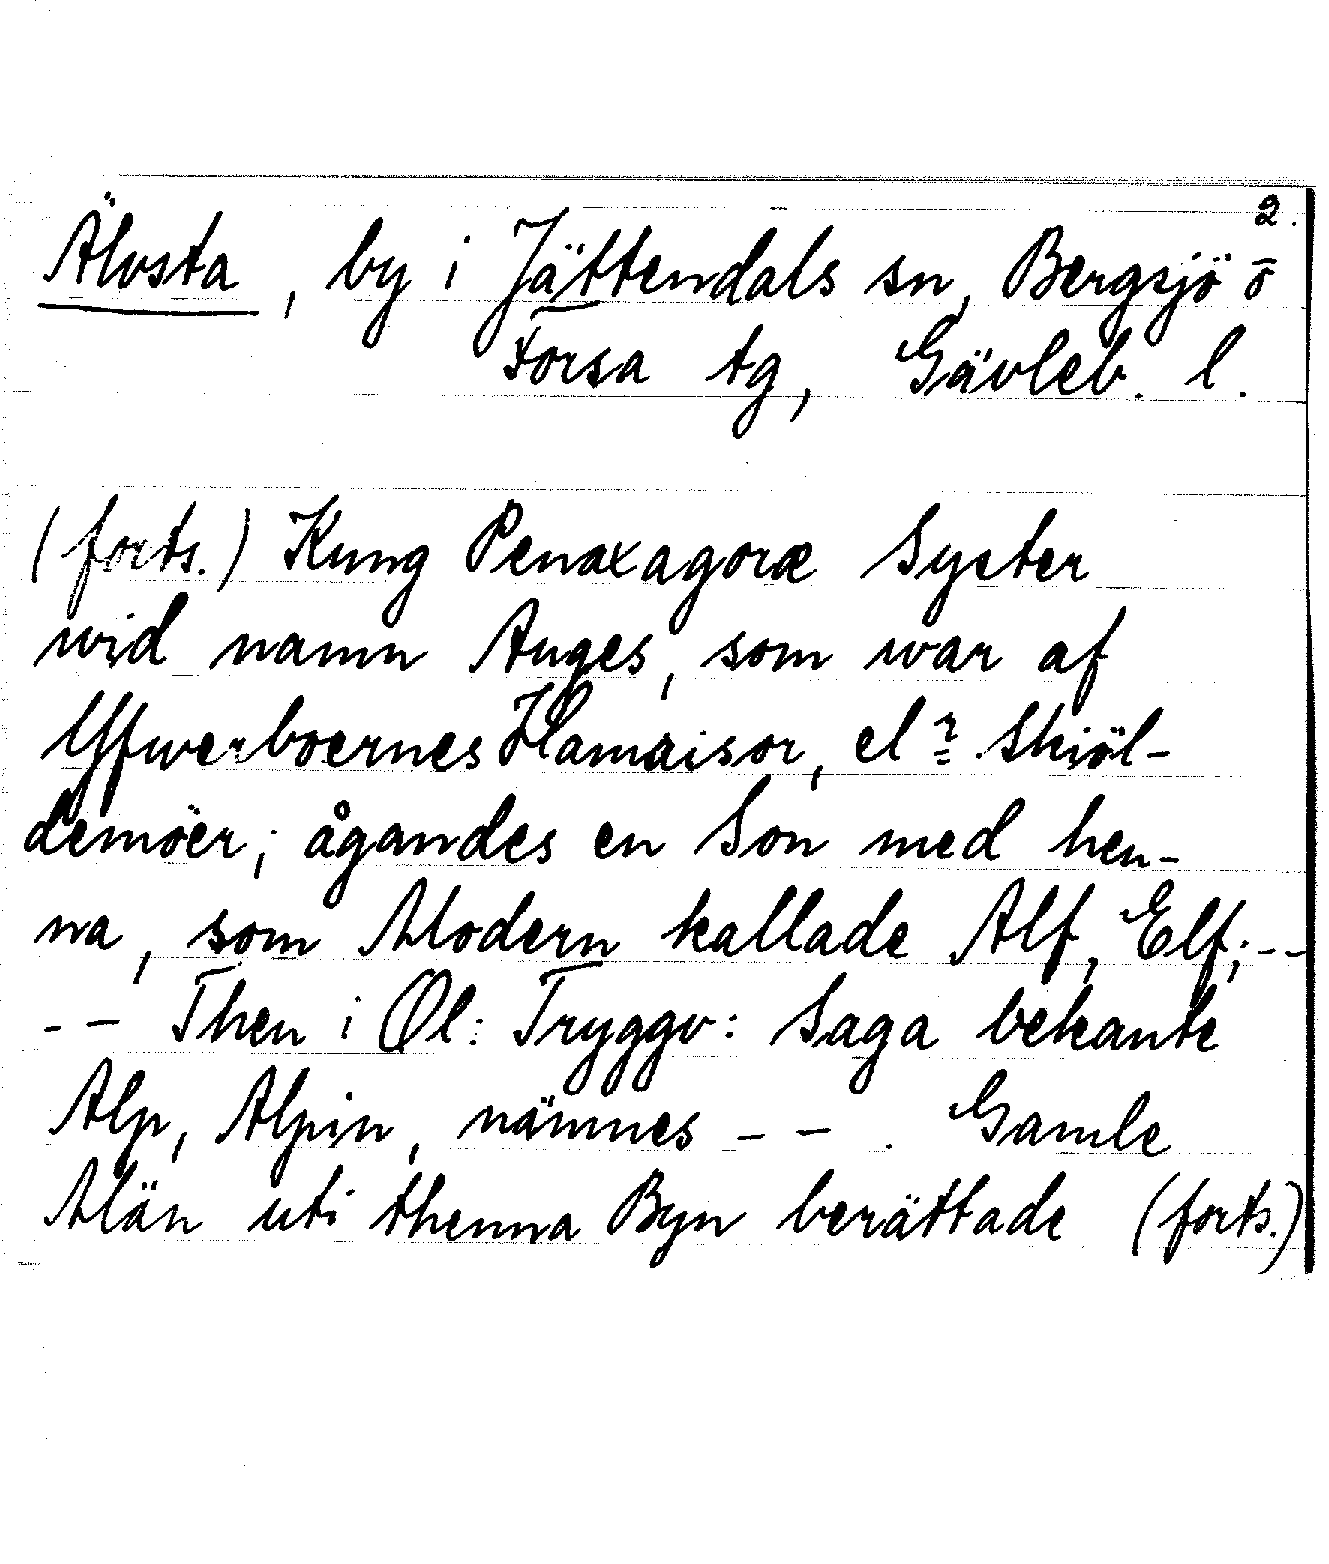 2.
Älvsta, by i Jättendals sn, Bergsjö o
Forsa tg, Gävleb. l.
(forts.) Kung Penaxagoræ Syster
wid namn Auges, som war af
Yfwerboernes Hamaisor, elr Skiöl-
demöer; ågandes en Son med hen-
na, som Modern kallade Alf, Elf; --
-- Then i Ol: Tryggv: Saga bekante
Alp, Alpin, nämnes -- . Gamle
Män uti thenna Byn berättade (forts.)